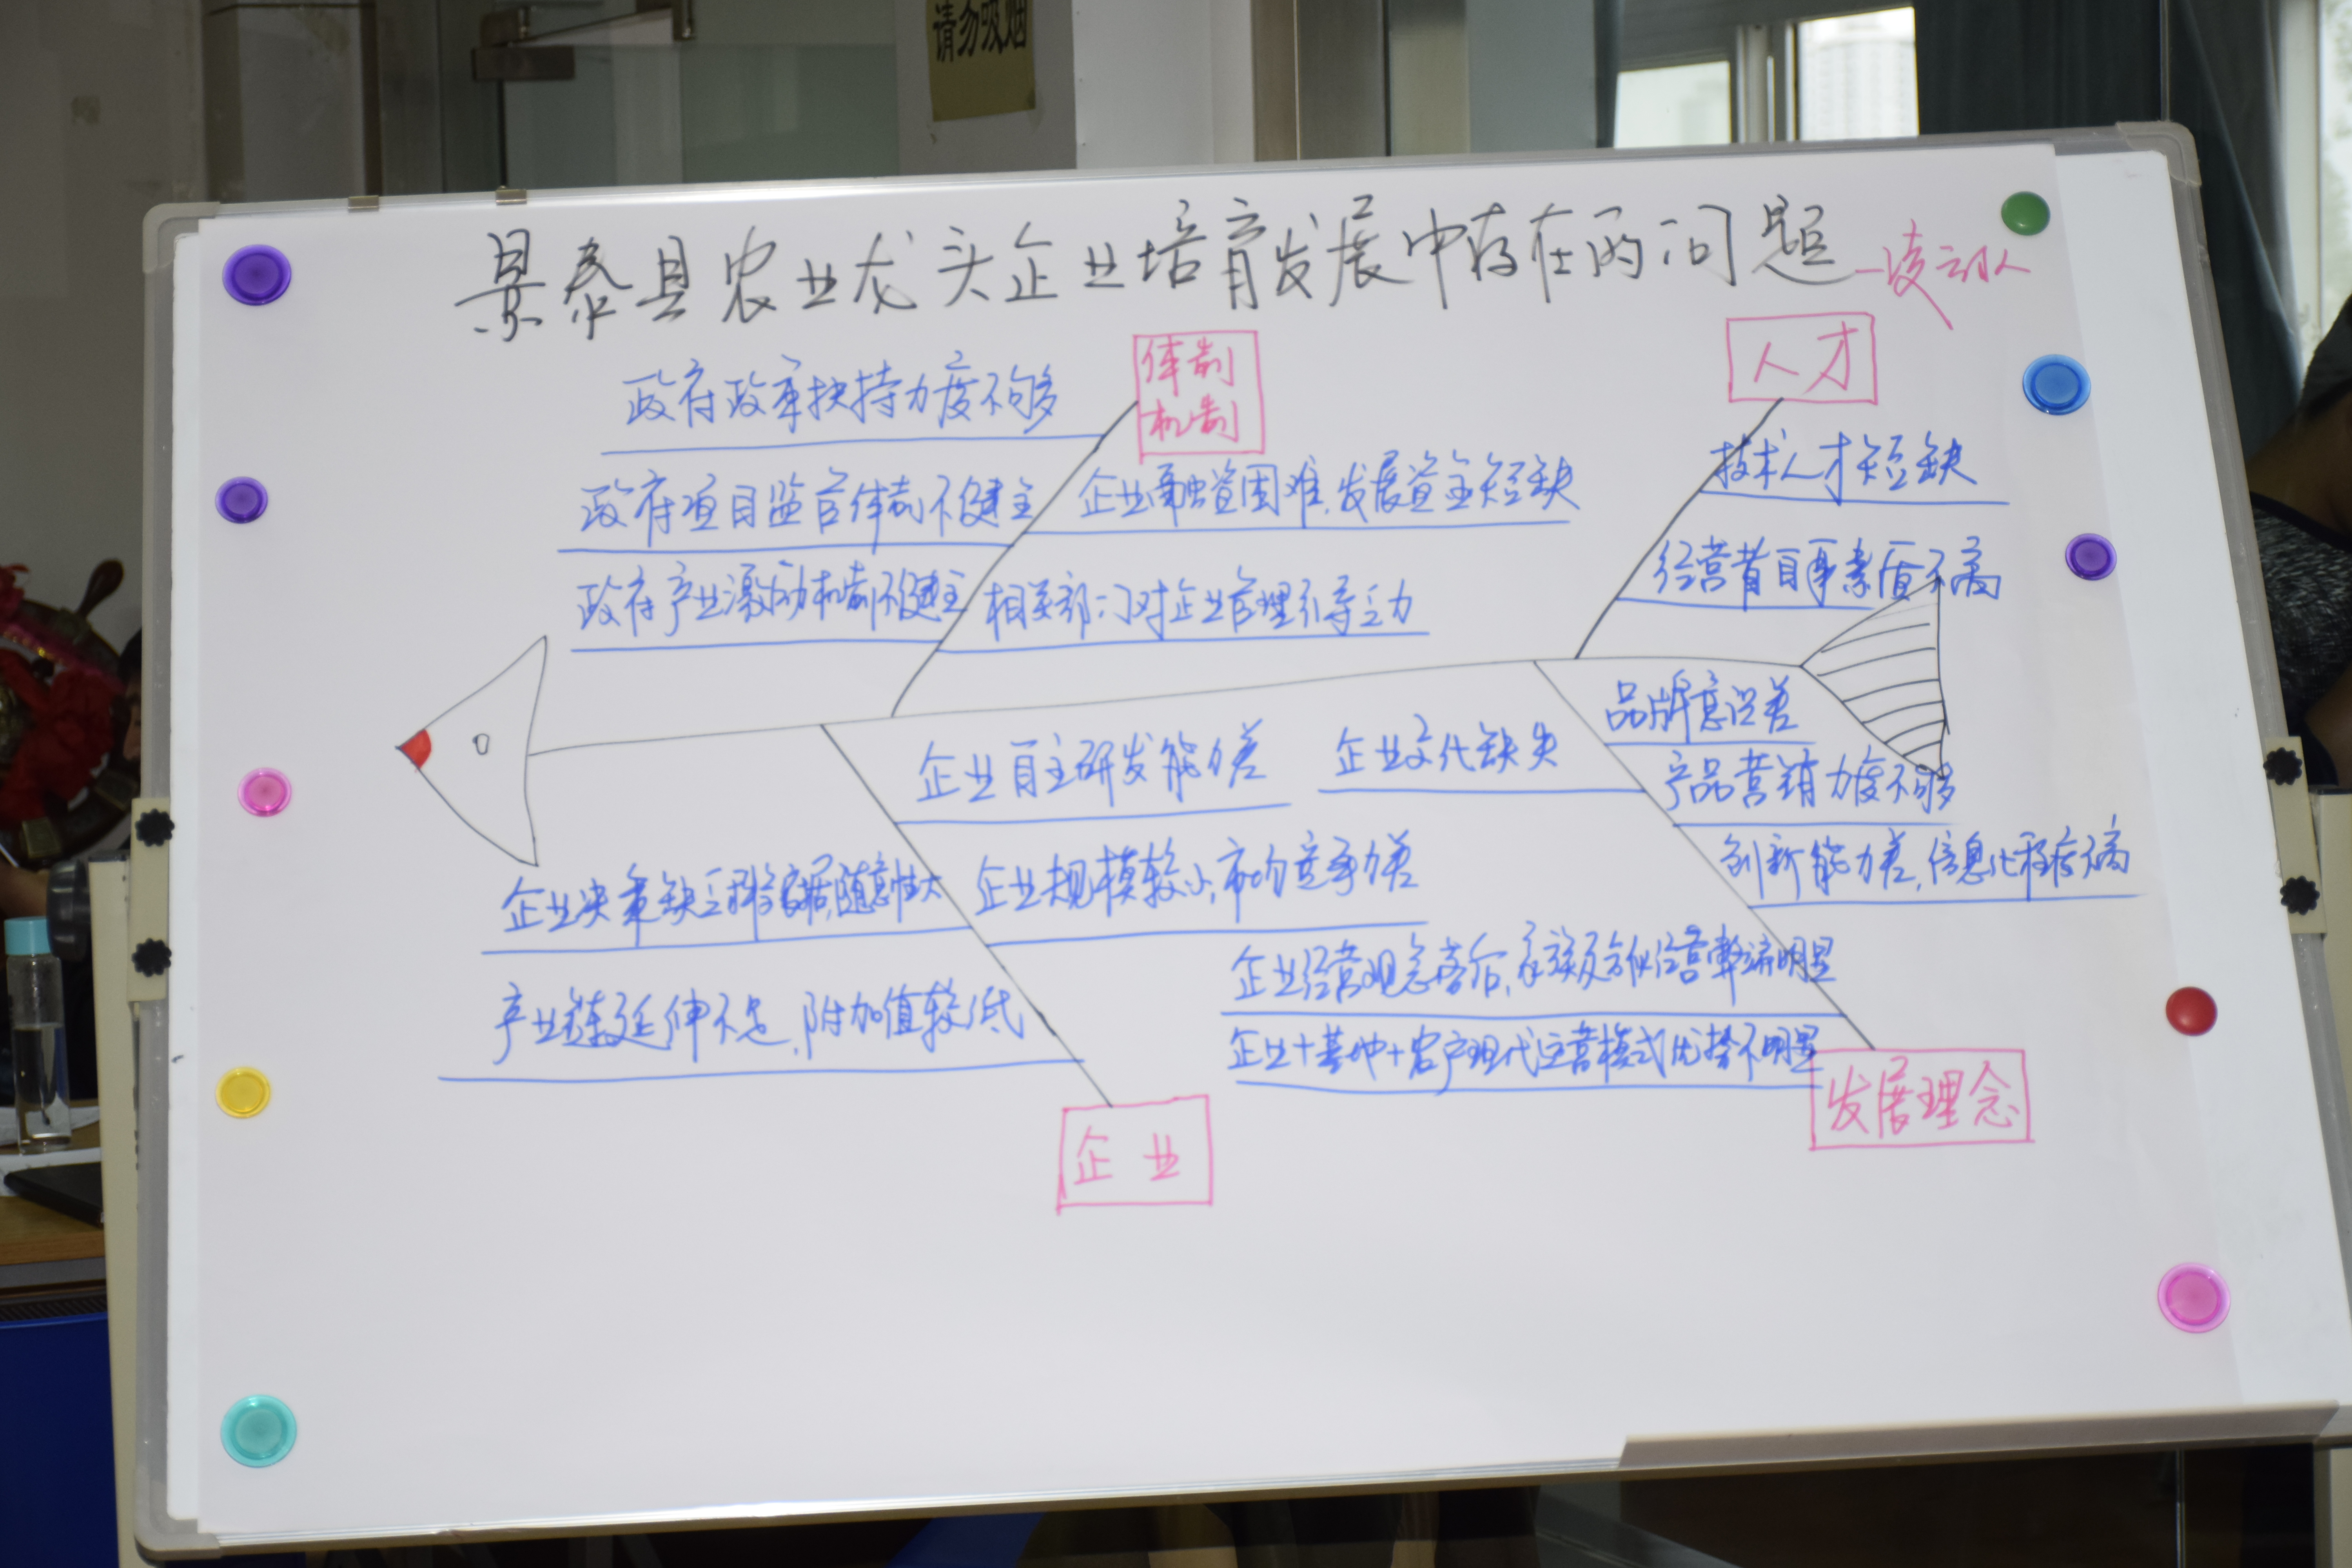 请勿吸烟
景泰县农业龙头企业培育发展中存在的问题
人才
体制
机制
政府政策扶持力度不够
政府项目监管体制不健全
企业融资困难,发展资金短缺
政府产业激励机制不健全
相关部门对企业管理引导乏力
技术人才短缺
经营者自身素质不高
企业自主研发能力差
企业文化缺失
品牌意识差
产品营销力度不够
创新能力差,信息化程度不高
企业决策缺乏科学依据,随意性大
企业规模较小,市场竞争力差
产业链延伸不足,附加值较低
企业经营观念落后,家族及合伙经营弊端明显
企业+基地+农户现代运营模式优势不明显
企业
发展理念